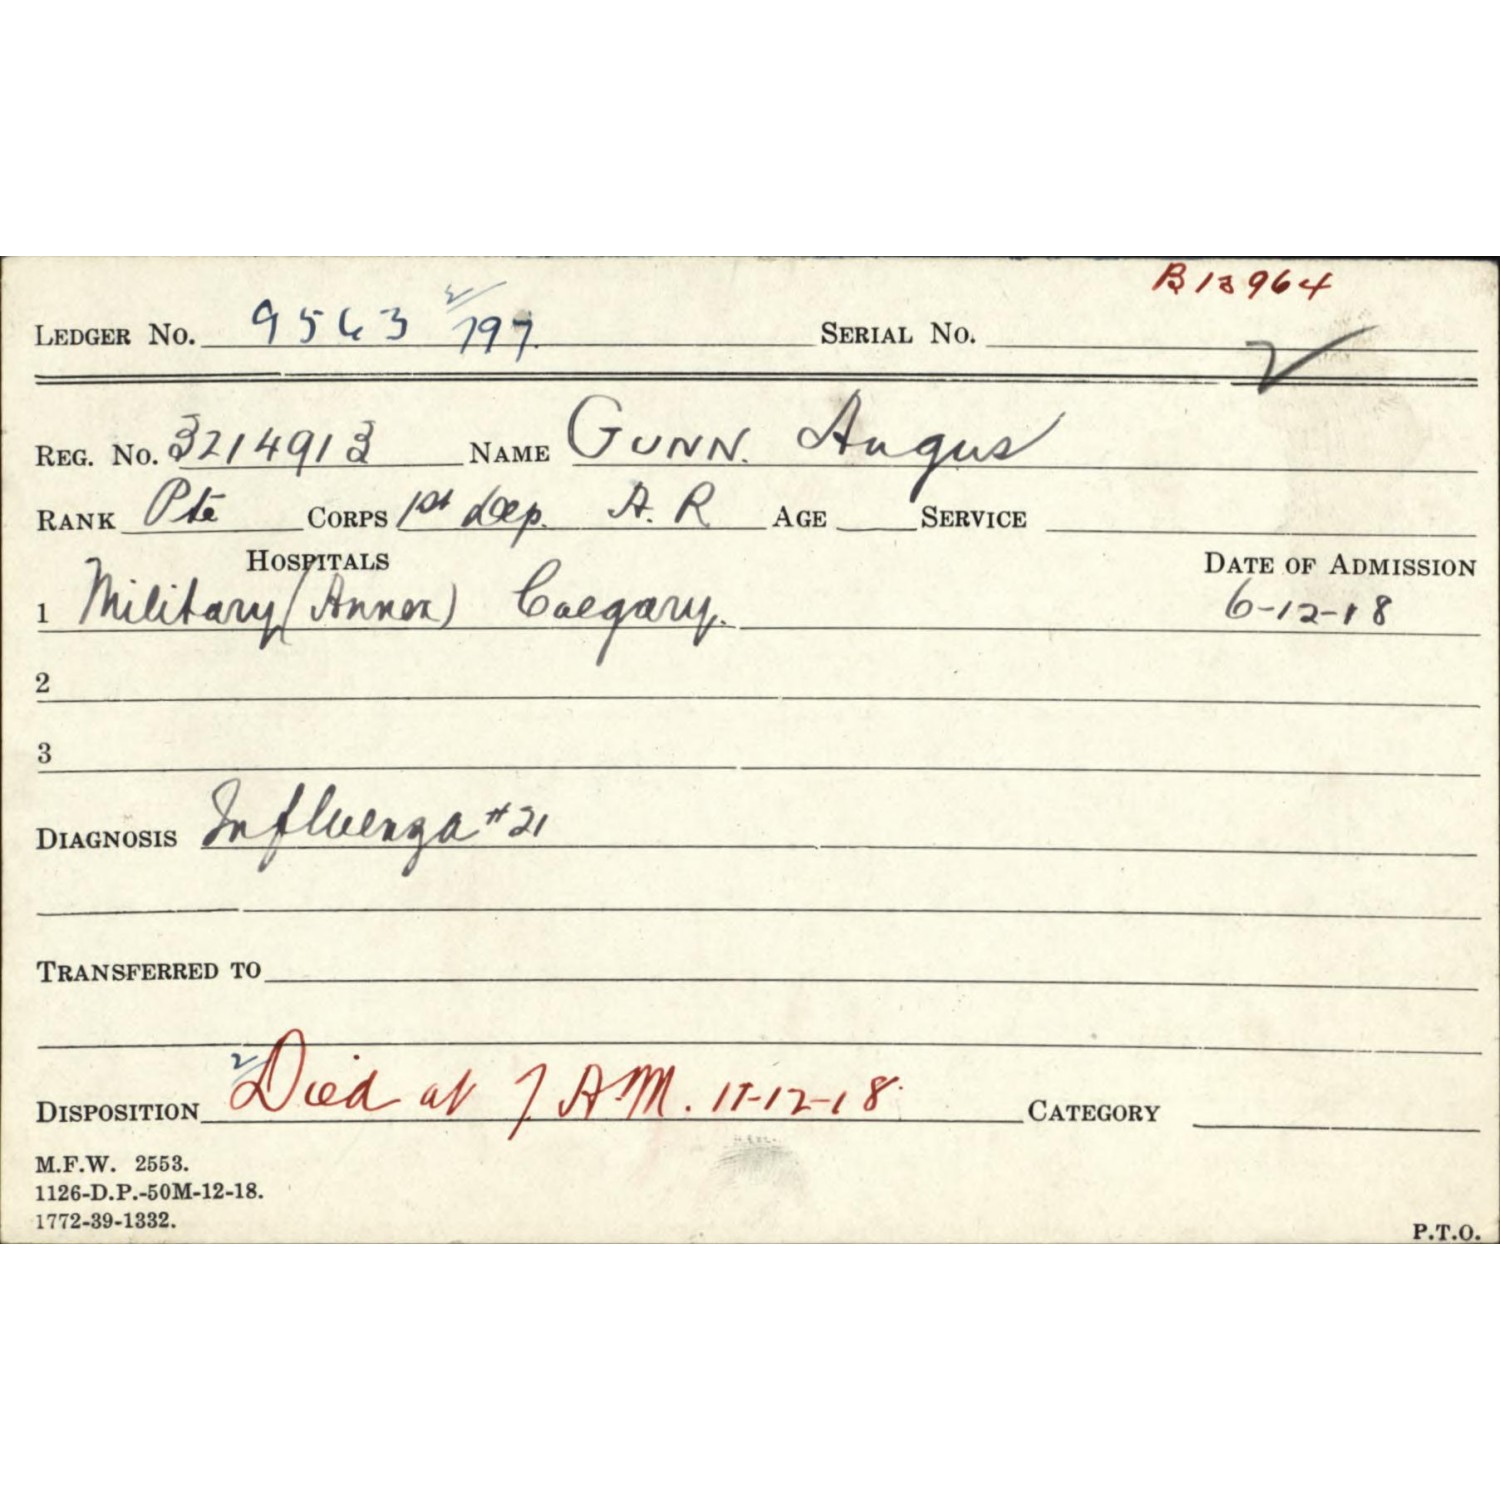 B13964
LEDGER No. 9563 2/797. SERIAL No.
REG. No. 3214913 NAME GUNN. Angus
RANK Pte CORPS 1st Dep. A. R AGE SERVICE
HOSPITALS DATE OF ADMISSION
1 Military (Annex) Calgary. 6-12-18
2
3
DIAGNOSIS Influenza #21
TRANSFERRED TO
DISPOSITION 2 Died at 7 A.M. 11-12-18. CATEGORY
M.F.W. 2553.
1126-D.P.-50M-12-18.
1772-39-1332.
P.T.O.